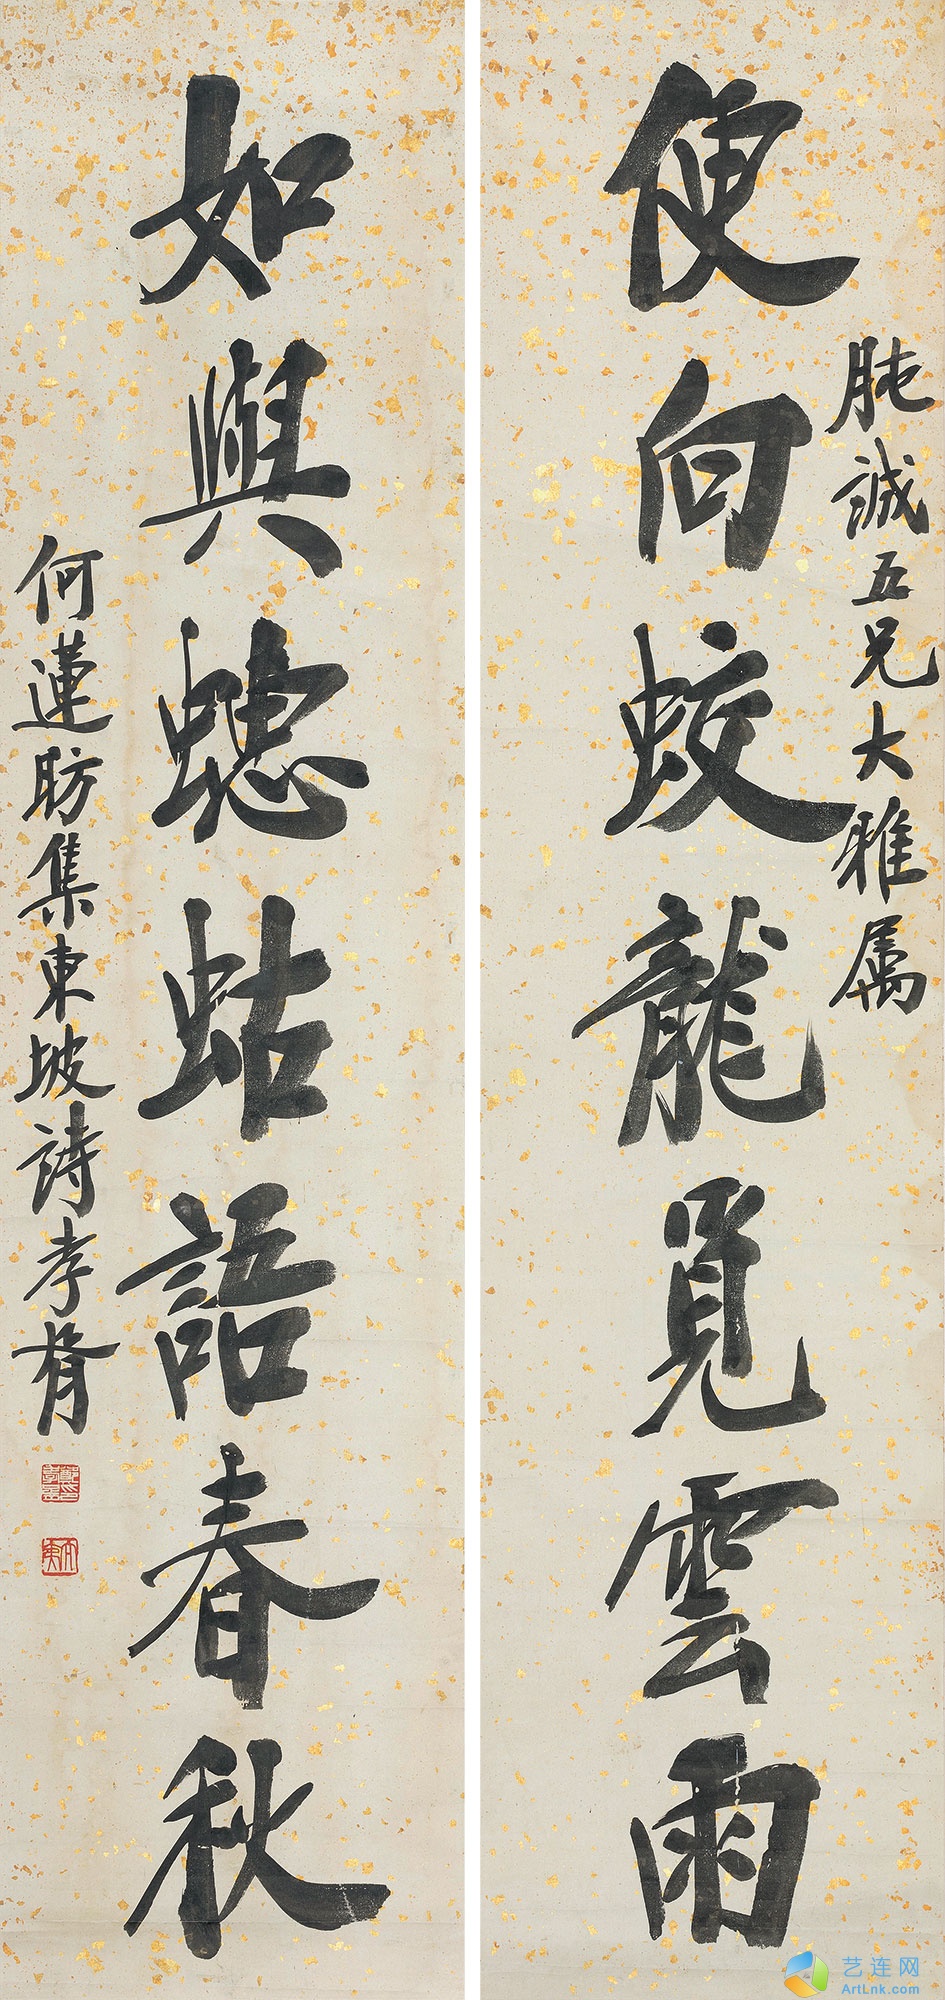 肫誠五兄大雅屬
使向蛟龍覓雲雨
如與蟪蛄語春秋
何蓮舫集東坡詩孝胥
艺连网
ArtLnk.com